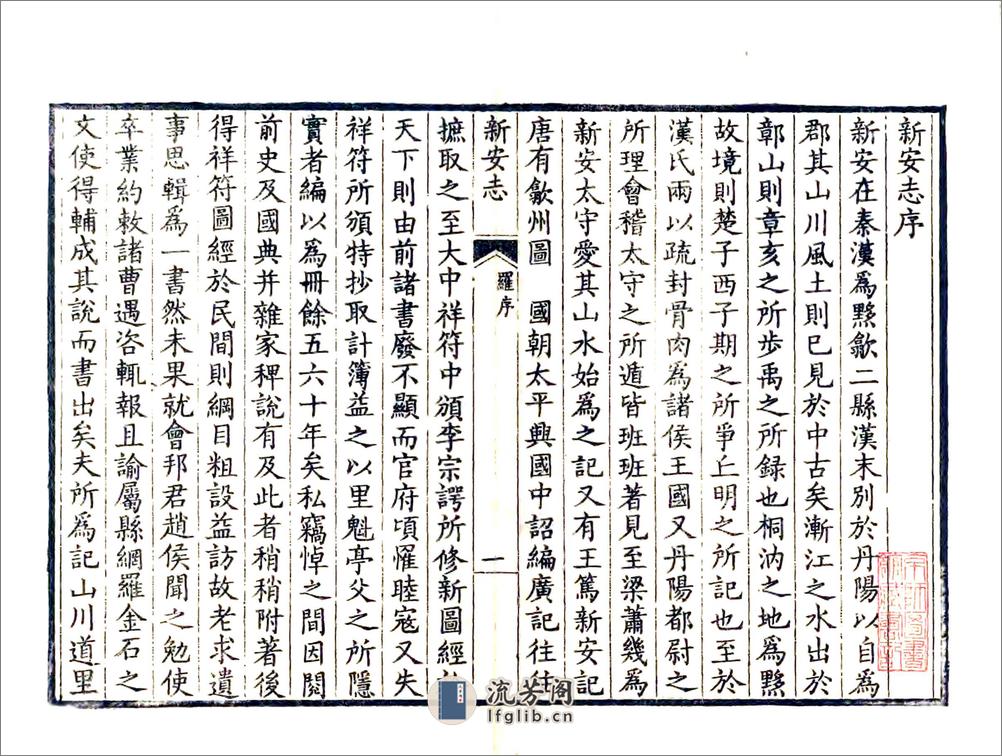 新安志序
新安在秦漢爲黟歙二縣漢末別於丹陽以自爲
郡其山川風土則已見於中古矣漸江之水出於
鄣山則章亥之所步禹之所録也桐汭之地爲黟
故境則楚子西子期之所爭丘明之所記也至於
漢氏兩以疏封骨肉爲諸侯王國又丹陽都尉之
所理會稽太守之所遁皆班班著見至梁蕭幾爲
新安太守愛其山水始爲之記又有王篤新安記
唐有歙州圖 國朝太平興國中詔編廣記往往
新安志 羅序 一
摭取之至大中祥符中頒李宗諤所修新圖經於
天下則由前諸書廢不顯而官府頃罹睦寇又失
祥符所頒特抄取計簿益之以里魁亭父之所隱
實者編以爲冊餘五六十年矣私竊悼之間因閱
前史及國典并雜家稗說有及此者稍稍附著後
得祥符圖經於民間則綱目粗設益訪故老求遺
事思輯爲一書然未果就會邦君趙侯聞之勉使
卒業約敕諸曹遇咨輒報且諭屬縣網羅金石之
文使得輔成其說而書出矣夫所爲記山川道里
流芳阁
lfglib.cn